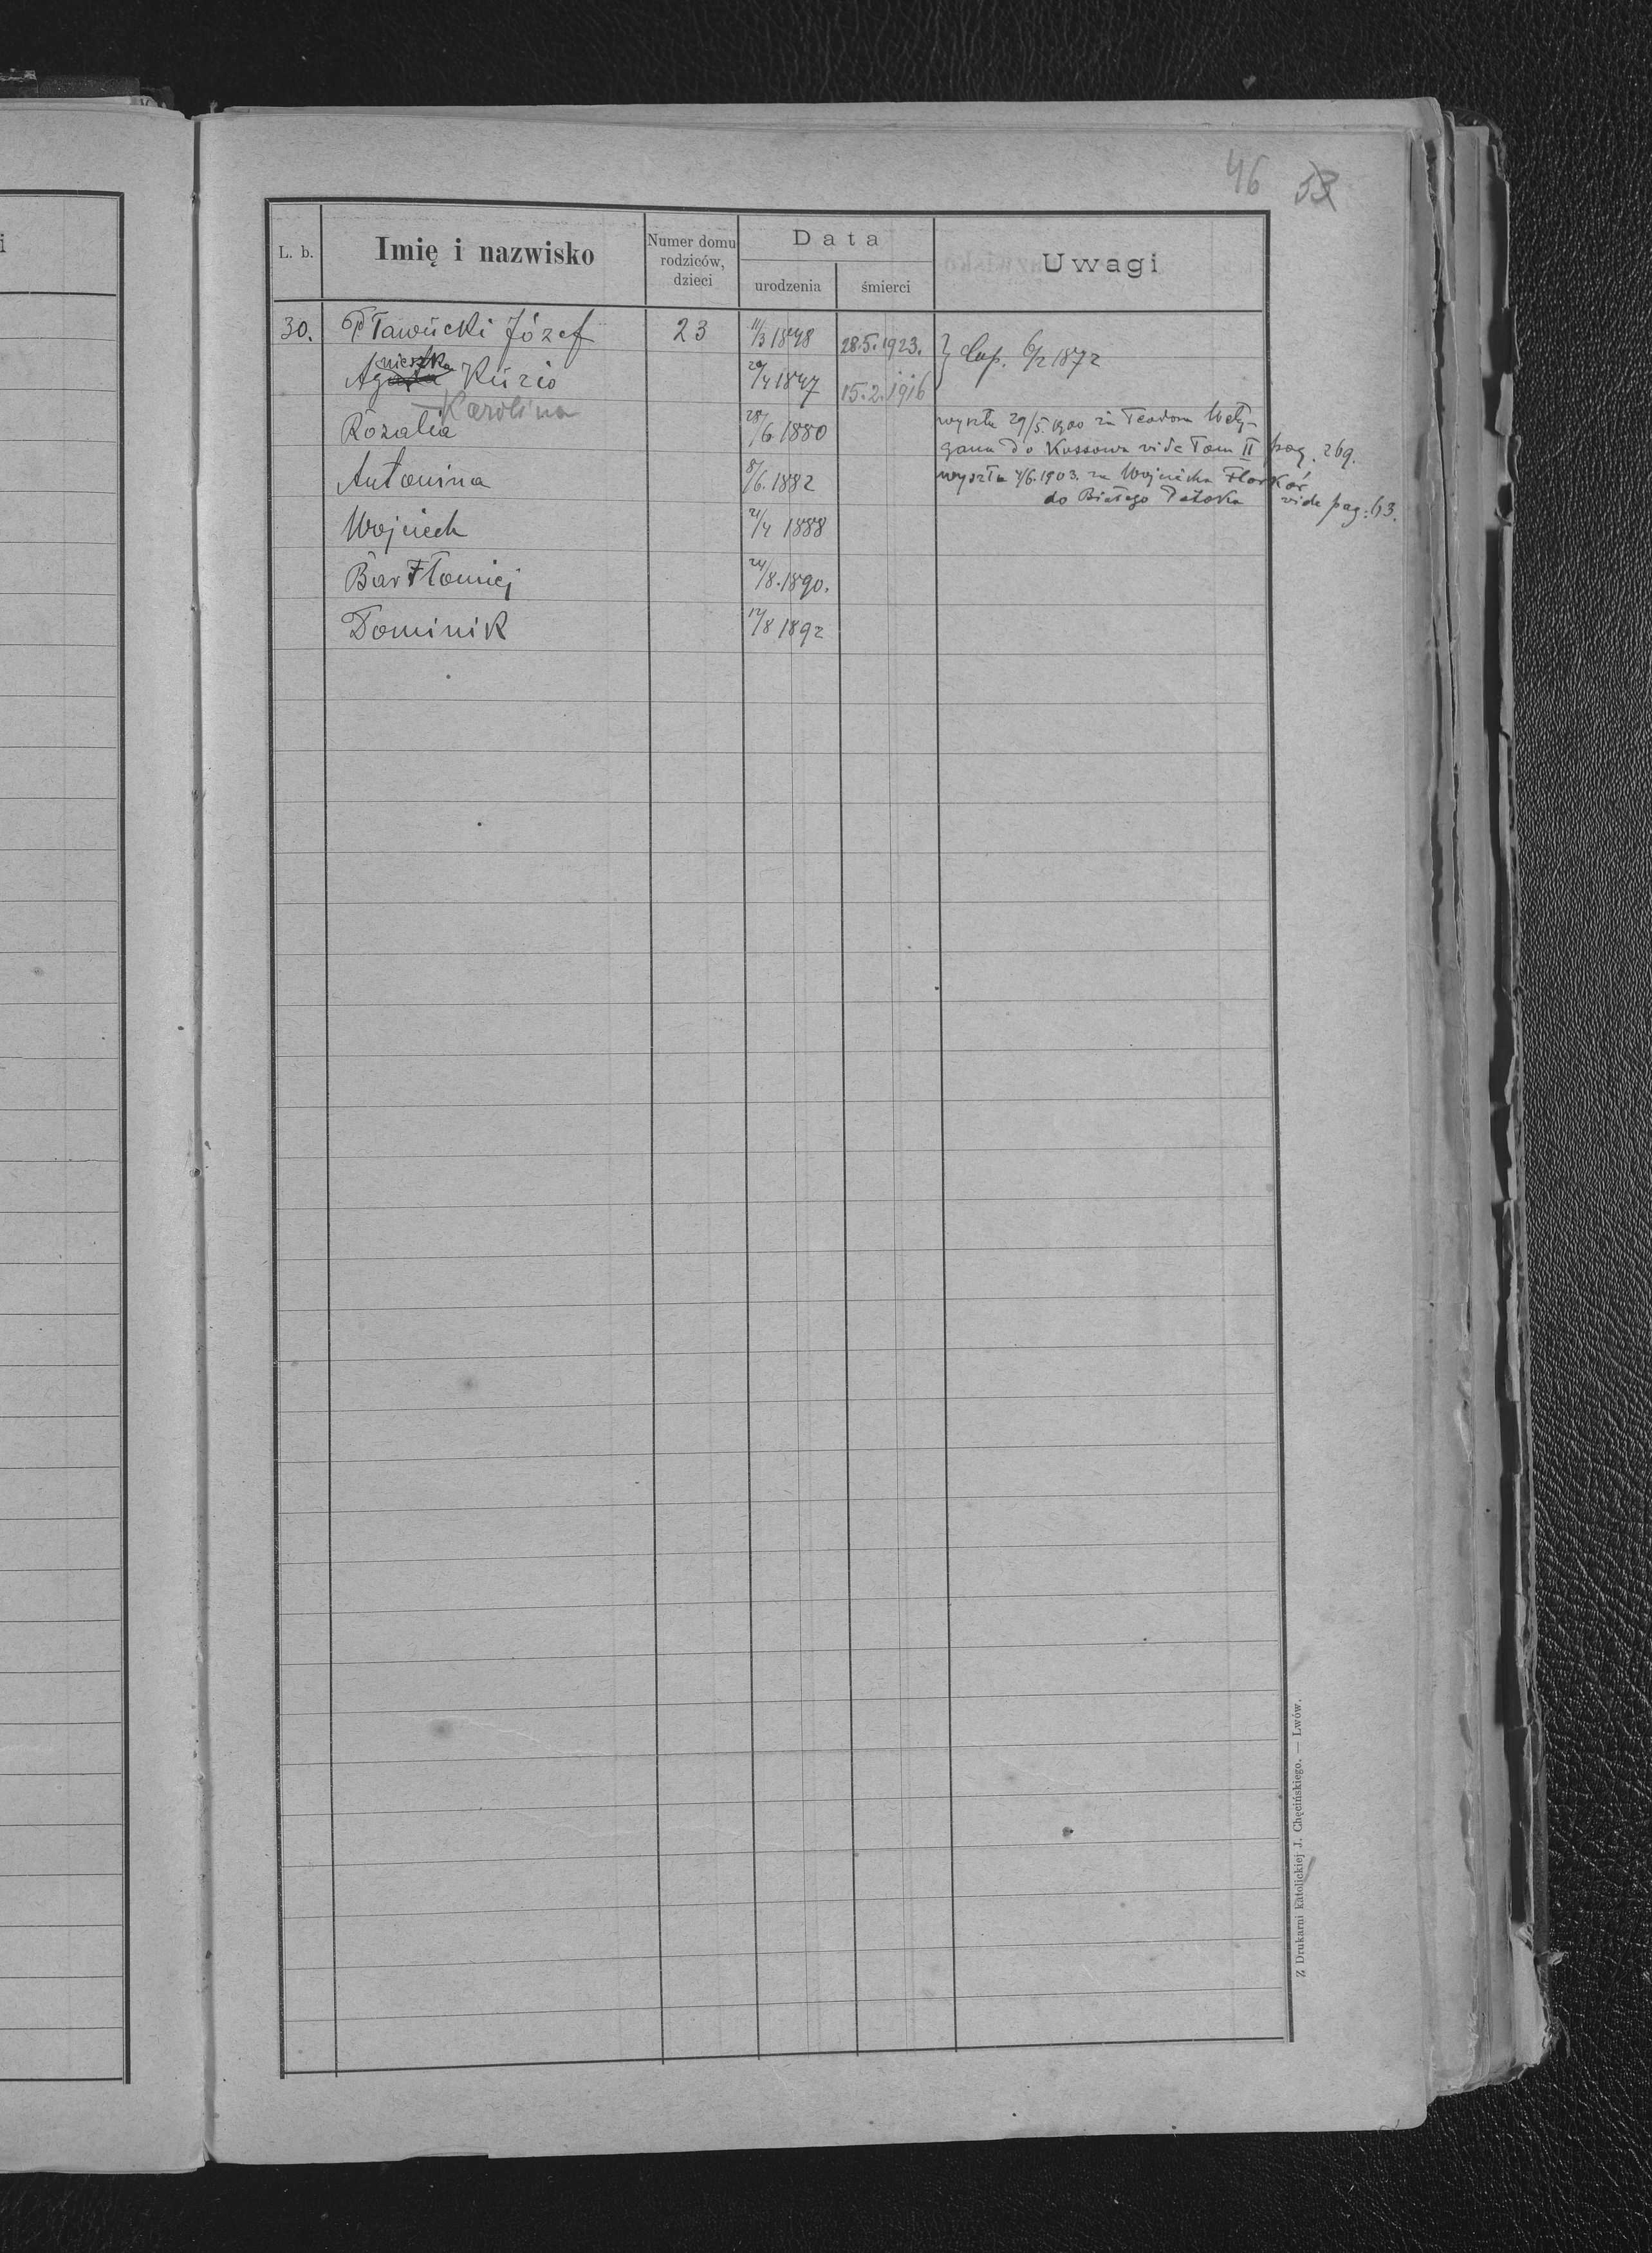 46 53
L. b. Imię i nazwisko Numer domu rodziców, dzieci Data urodzenia śmierci Uwagi
30. Pławucki Józef 23 11/3 1848 28.5.1923. } Cop. 6/2 1872
Agnieszka Kuzio 20/4 1847 15.2.1916
Karolina
Rozalia 28/6 1880 wyszła 29/5. 1900 za Teodora Wety-
gana do Kossowa vide Tom II pag. 269.
Antonina 8/6. 1882 wyszła 4/6.1903. za Wojciecha Florków
do Białego Potoka vide pag: 63.
Wojciech 21/4 1888
Bartłomiej 24/8.1890.
Dominik 12/8 1892
Z Drukarni katolickiej J. Chęcińskiego. — Lwów.